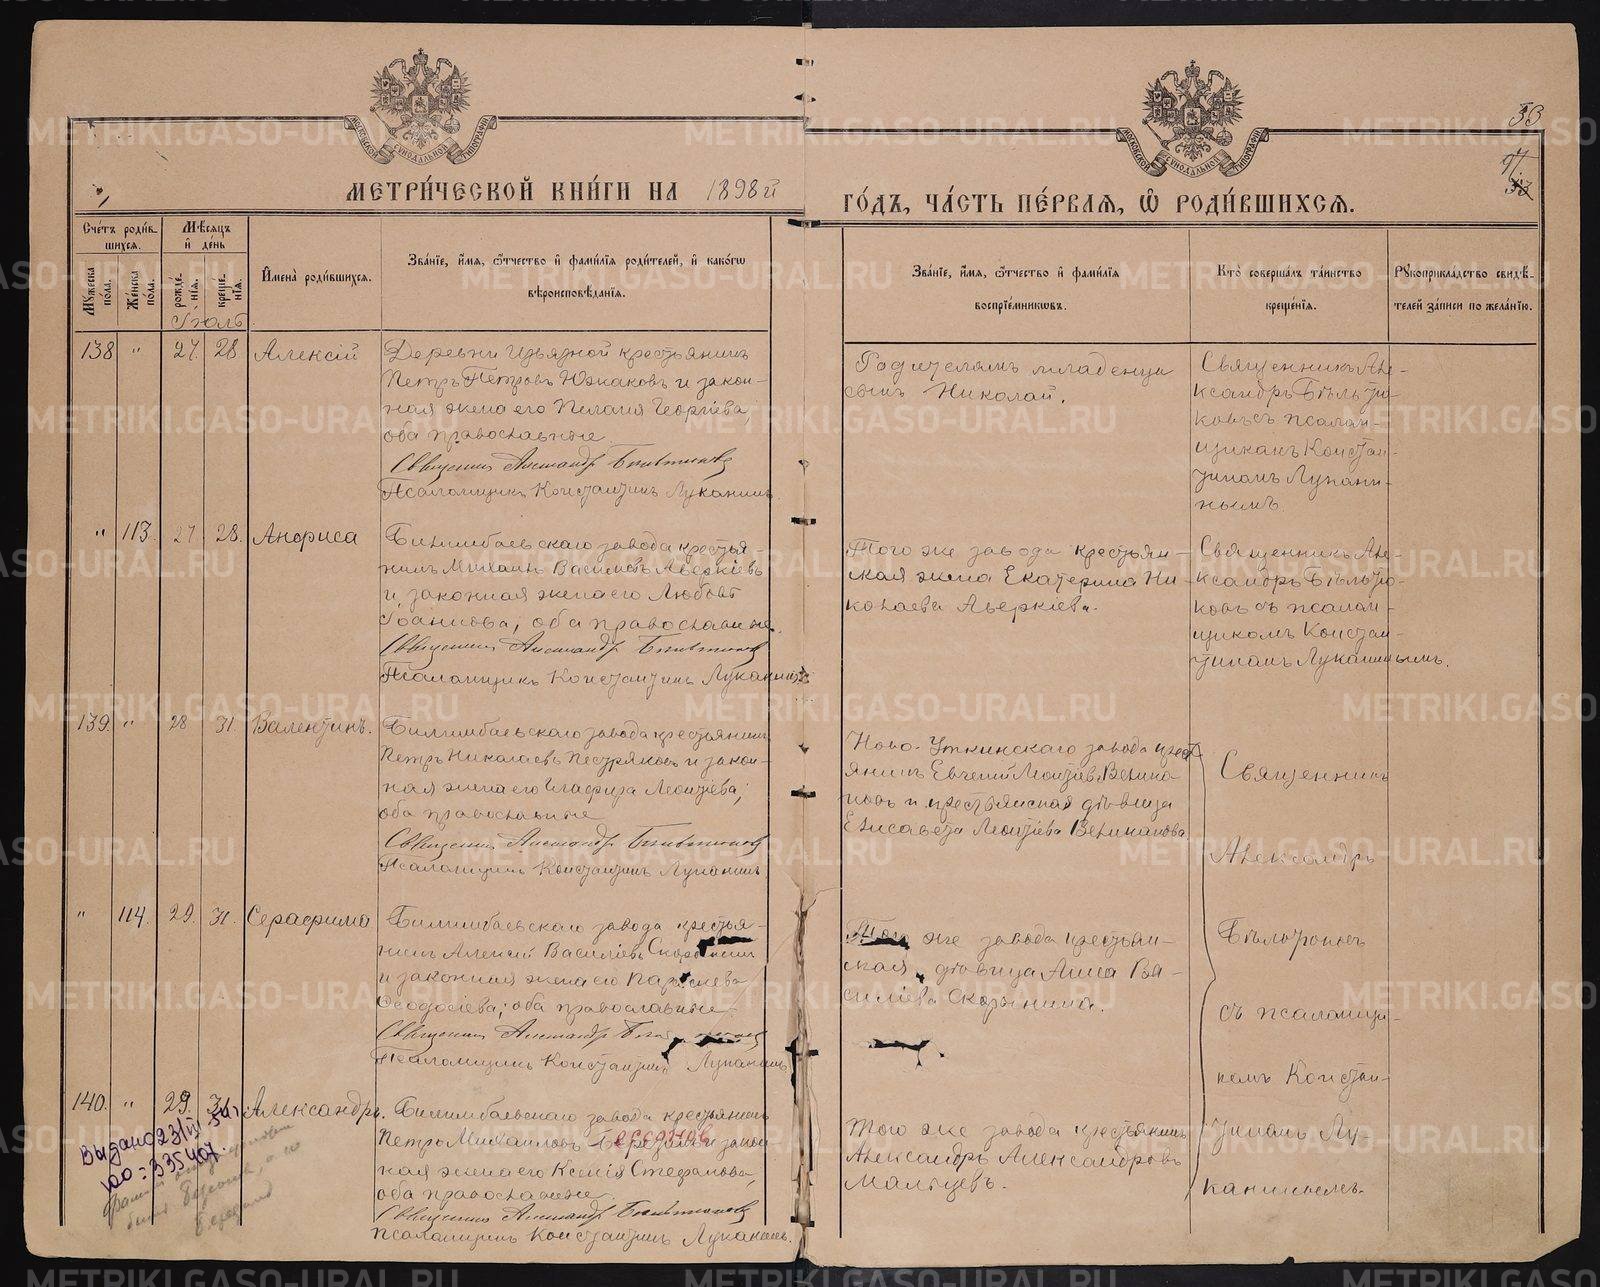 53
МЕТРИ́ЧЕСКОЙ КНИ́ГИ НА 1898й
ГО́ДЪ, ЧА́СТЬ ПЕ́РВАЯ, Ѡ҆ РОДИ́ВШИХСЯ.
Счетъ роди́вшихся.
Му́жеска по́ла.
Же́нска по́ла.
Мѣ́сяцъ и҆ де́нь
рожде́нїя.
креще́нїя.
Іюль
И҆мена̀ роди́вшихся.
Зва́нїе, и҆́мя, ѻ҆́тчество и҆ фами́лїя роди́телей, и҆ како́гѡ
вѣроисповѣ́данїя.
Зва́нїе, и҆́мя, ѻ҆́тчество и҆ фами́лїя
воспрїе́мниковъ.
Кто̀ соверша́лъ та́инство
креще́нїя.
Рꙋкоприкла́дство свидѣ́-
телей за́писи по жела́нїю.
138 " 27. 28. Алексій
Деревни Извязной крестьянинъ
Петръ Петровъ Южаковъ и закон-
ная жена его Пелагія Георгіева,
оба православные.
Священникъ Александръ Бѣлтюковъ
Псаломщикъ Константинъ Луканинъ
Родителямъ младенца
сынъ Николай.
Священникъ Але-
ксандръ
ковъ съ псалом-
щикомъ Констан-
тиномъ Лукани-
нымъ.
" 113. 27 28. Анфиса
Билимбаевскаго завода крестья-
нинъ Михаилъ Васильевъ Аверкіевъ
и законная жена его Любовь
Іоаннова, оба православные.
Священникъ Александръ
Псаломщикъ Константинъ Луканинъ
Того же завода крестьян-
ская жена Екатерина Ни-
колаева Аверкіева.
Священникъ Але-
ксандръ
ковъ съ псалом-
щикомъ Констан-
тиномъ Луканинымъ.
139. " 28 31. Валентинъ.
Билимбаевскаго завода крестьянинъ
Петръ Николаевъ Пестряковъ и закон-
ная жена его Глафира Леонтіева;
оба православные
Священникъ Александръ
Псаломщикъ Константинъ Луканинъ
Ново-Уткинскаго завода крест-
янинъ Евгеній Леонтіевъ Велика-
новъ и крестьянская дѣвица
Елисавета Леонтіева Великанова.
Священникъ
Александръ
съ псаломщи-
комъ Констан-
тиномъ Лу-
канинымъ.
" 114. 29. 31. Серафима
Билимбаевскаго завода крестья-
нинъ Алексій Васильевъ Скорынинъ
и законная жена его Параскева
Ѳеодосіева; оба православные.
Священникъ Александръ
Псаломщикъ Константинъ Луканинъ
Того же завода крестьян-
ская дѣвица Анна Ва-
силіева Скорынина.
140. " 29. 31. Александръ.
Билимбаевскаго завода крестьянинъ
Петръ Михаиловъ и закон-
ная жена его Ксенія Стефанова,
оба православные.
Священникъ Александръ
Псаломщикъ Константинъ Луканинъ.
Того же завода крестьянинъ
Александръ Александровъ
Мальцевъ.
Выдано 23/III 54г
ЮО=335407.